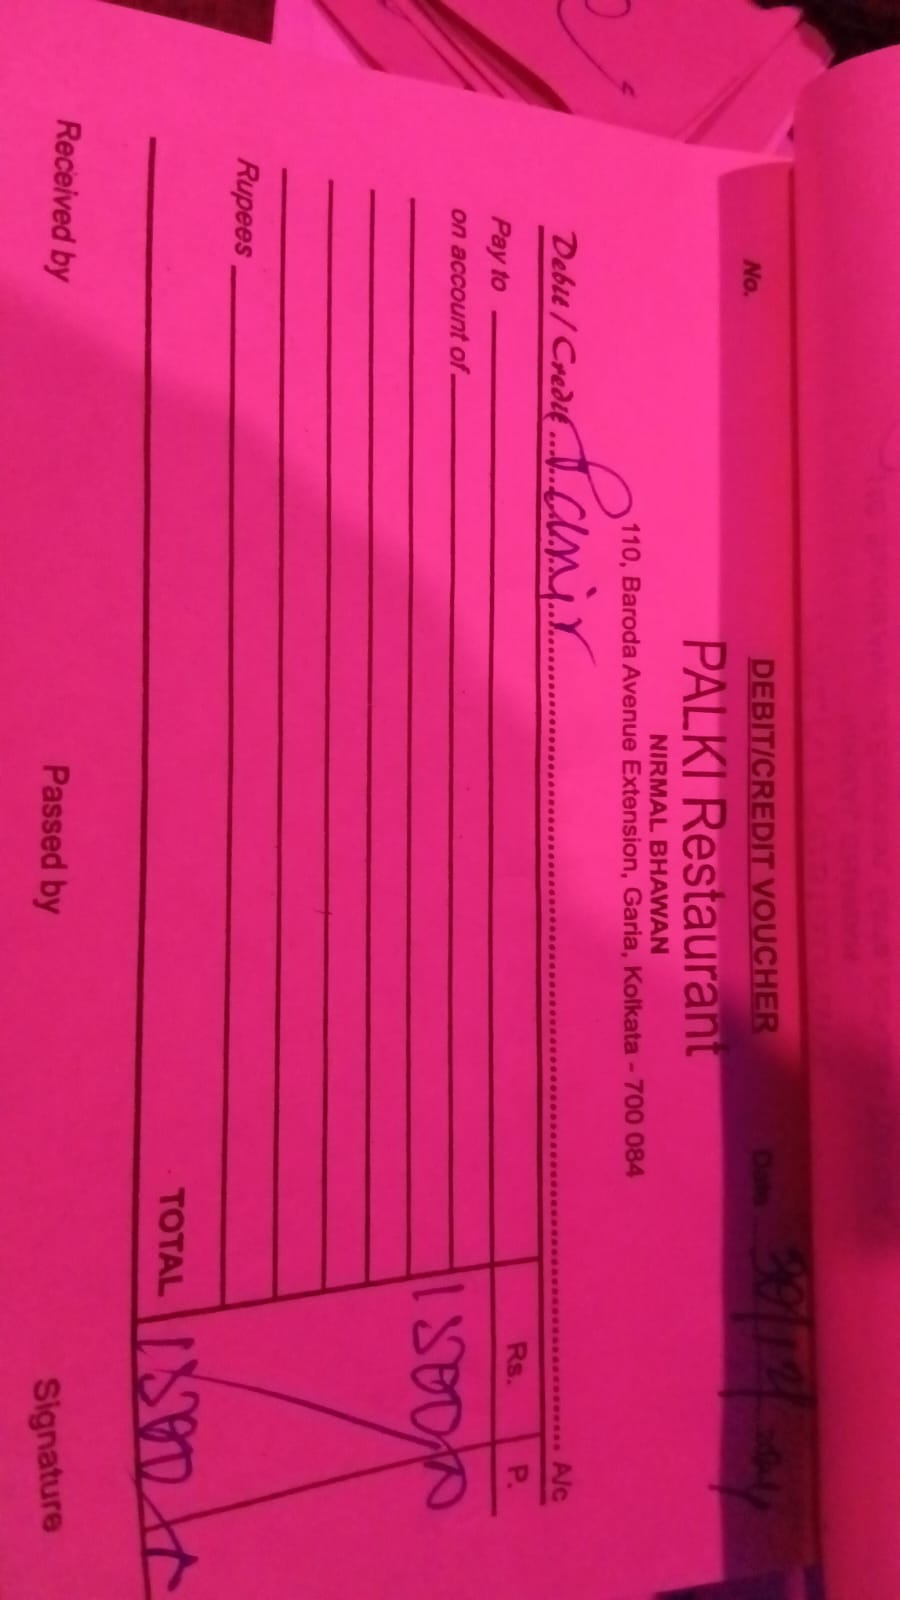 DEBIT/CREDIT VOUCHER
No.
Date
PALKI Restaurant
NIRMAL BHAWAN
110, Baroda Avenue Extension, Garia, Kolkata - 700 084
Debit / Credit A/c
Pay to
Rs. P.
on account of
Rupees
TOTAL
Received by Passed by Signature